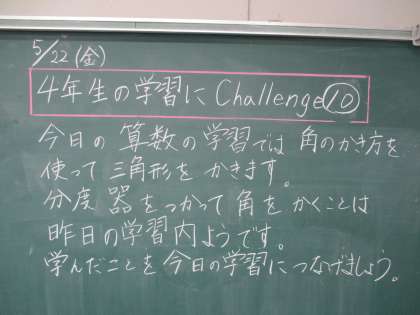 5/22(金)
4年生の学習にChallenge⑩
今日の算数の学習では角のかき方を
使って三角形をかきます。
分度器をつかって角をかくことは
昨日の学習内ようです。
学んだことを今日の学習につなげましょう。